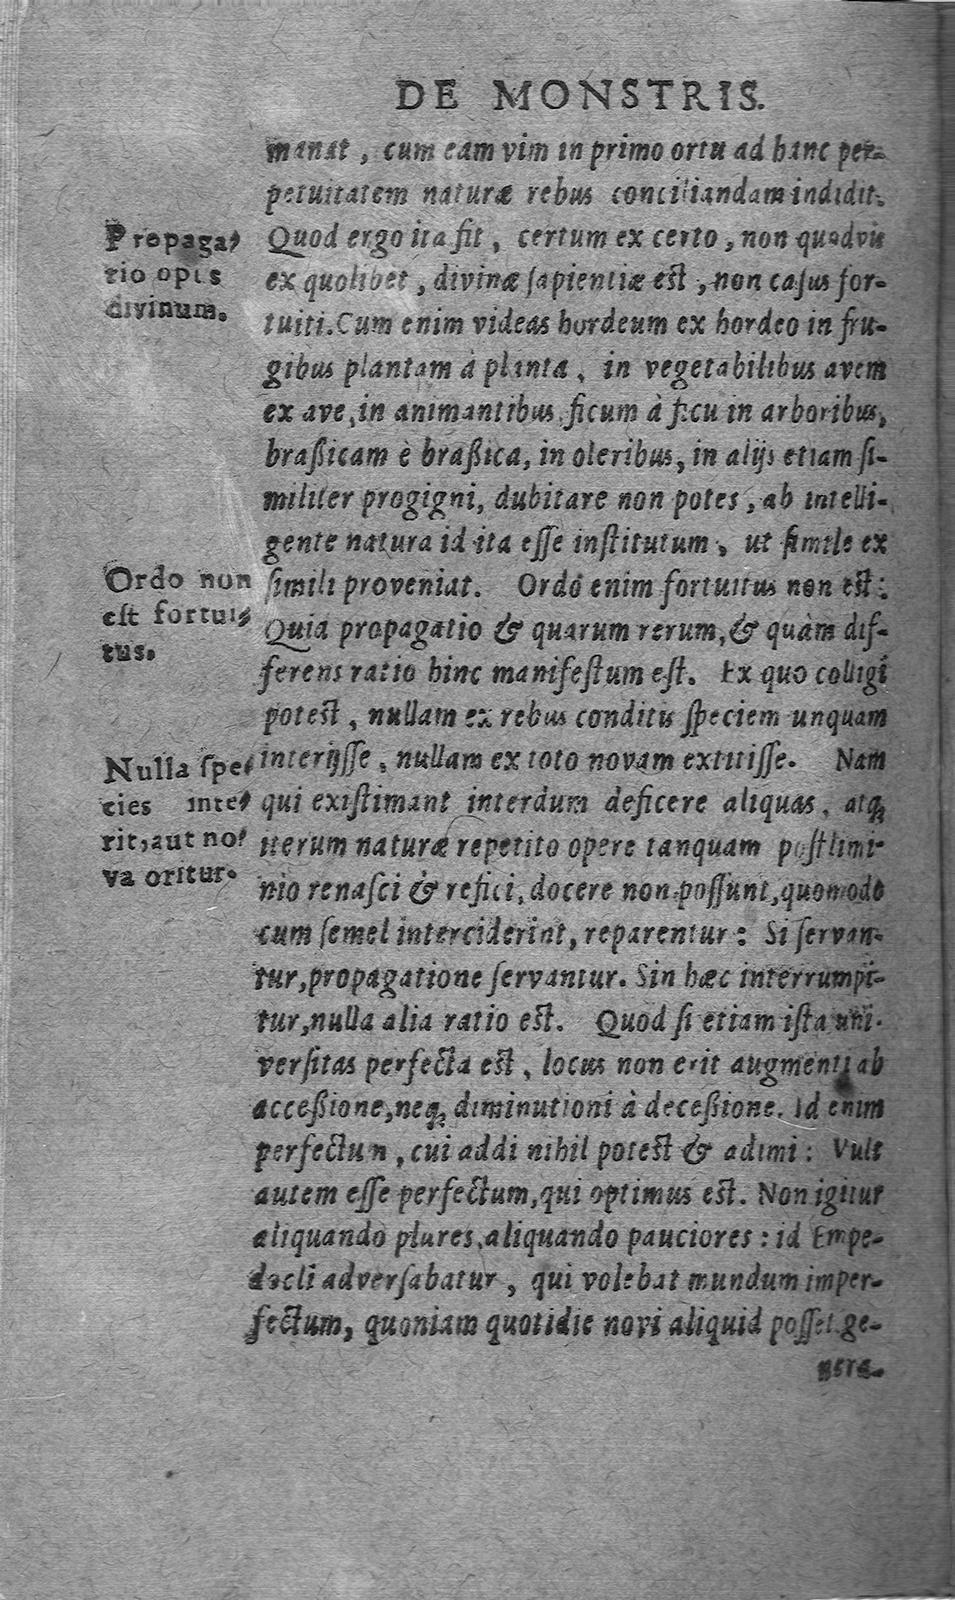 DE MONSTRIS.
manat, cum eam vim in primo ortu ad hanc per-
petuitatem naturæ rebus conciliandam indidit.
Propaga-
tio opus
divinum.
Quod ergo ita fit, certum ex certo, non quodvis
ex quolibet, divinæ sapientiæ est, non casus for-
tuiti. Cum enim videas hordeum ex hordeo in fru-
gibus plantam à planta, in vegetabilibus avem
ex ave, in animantibus, ficum à ficu in arboribus,
braßicam è braßica, in oleribus, in alijs etiam si-
militer progigni, dubitare non potes, ab intelli-
gente natura id ita esse institutum, ut simile ex
Ordo non
est fortui-
tus.
simili proveniat. Ordo enim fortuitus non est:
Quia propagatio & quarum rerum, & quàm dif-
ferens ratio hinc manifestum est. Ex quo colligi
potest, nullam ex rebus conditis speciem unquam
Nulla spe-
cies inte-
rit, aut no-
va oritur.
interijsse, nullam ex toto novam extitisse. Nam
qui existimant interdum deficere aliquas, atq;
iterum naturæ repetito opere tanquam postlimi-
nio renasci & refici, docere non possunt, quomodo
cum semel interciderint, reparentur: Si servan-
tur, propagatione servantur. Sin hæc interrumpi-
tur, nulla alia ratio est. Quod si etiam ista uni-
versitas perfecta est, locus non erit augmenti ab
acceßione, neq; diminutioni à deceßione. Id enim
perfectun, cui addi nihil potest & adimi: Vult
autem esse perfectum, qui optimus est. Non igitur
aliquando plures, aliquando pauciores: id Empe-
docli adversabatur, qui volebat mundum imper-
fectum, quoniam quotidie novi aliquid posset ge-
nera-